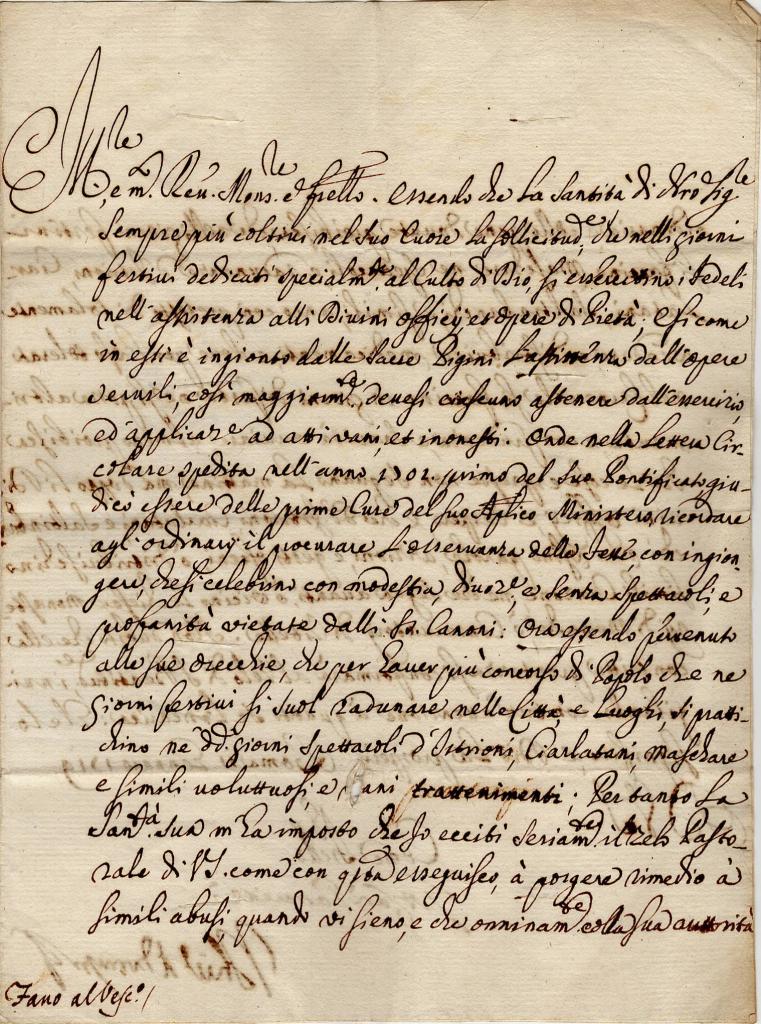 M.le e m.o Reu. Mons.re e fr̃ello. Essendo che la Santità di Nr̃o Sig.re
sempre più coltivi nel suo Cuore la sollicitud.e, che nelli giorni
festivi dedicati specialm.te al Culto di Dio, si essercitino i Fedeli
nell'assistenza alli Divini officij, et opere di Pietà; e si come
in essi è ingionto dalle Sacre Pigini l'astinenza dall'opere
servili, così maggiorm.te devesi ciascuno astenere dall'essercizio,
ed applicaz.e ad atti vani, et inonesti. Onde nella Lettera Cir-
colare spedita nell'anno 1701. primo del suo Pontificato giu-
dicò essere delle prime Cure del suo Aplico Ministero, ricordare
agl'ordinarij il procurare l'osservanza delle feste, con ingion-
gere, che si celebrino con modestia, divoz.e, e senza spettacoli, e
profanità vietate dalli S.i Canoni: Ora essendo pervenuto
alle sue orecchie, che per haver più concorso di Popolo che ne
giorni festivi si suol radunare nelle Città, e Luoghi, si pratti-
chino ne dd. giorni spettacoli d'Istrioni, Ciarlatani, maschare
e simili voluttuosi, e vani trattenimenti; Pertanto la
San.tà sua m'ha imposto che io ecciti seriam.te il zelo Pasto-
rale di V.S. come con q.ta esseguisco, à porgere rimedio à
simili abusi, quando vi sieno, e che onninam.te colla sua auttorità
Fano al Vesc.o/